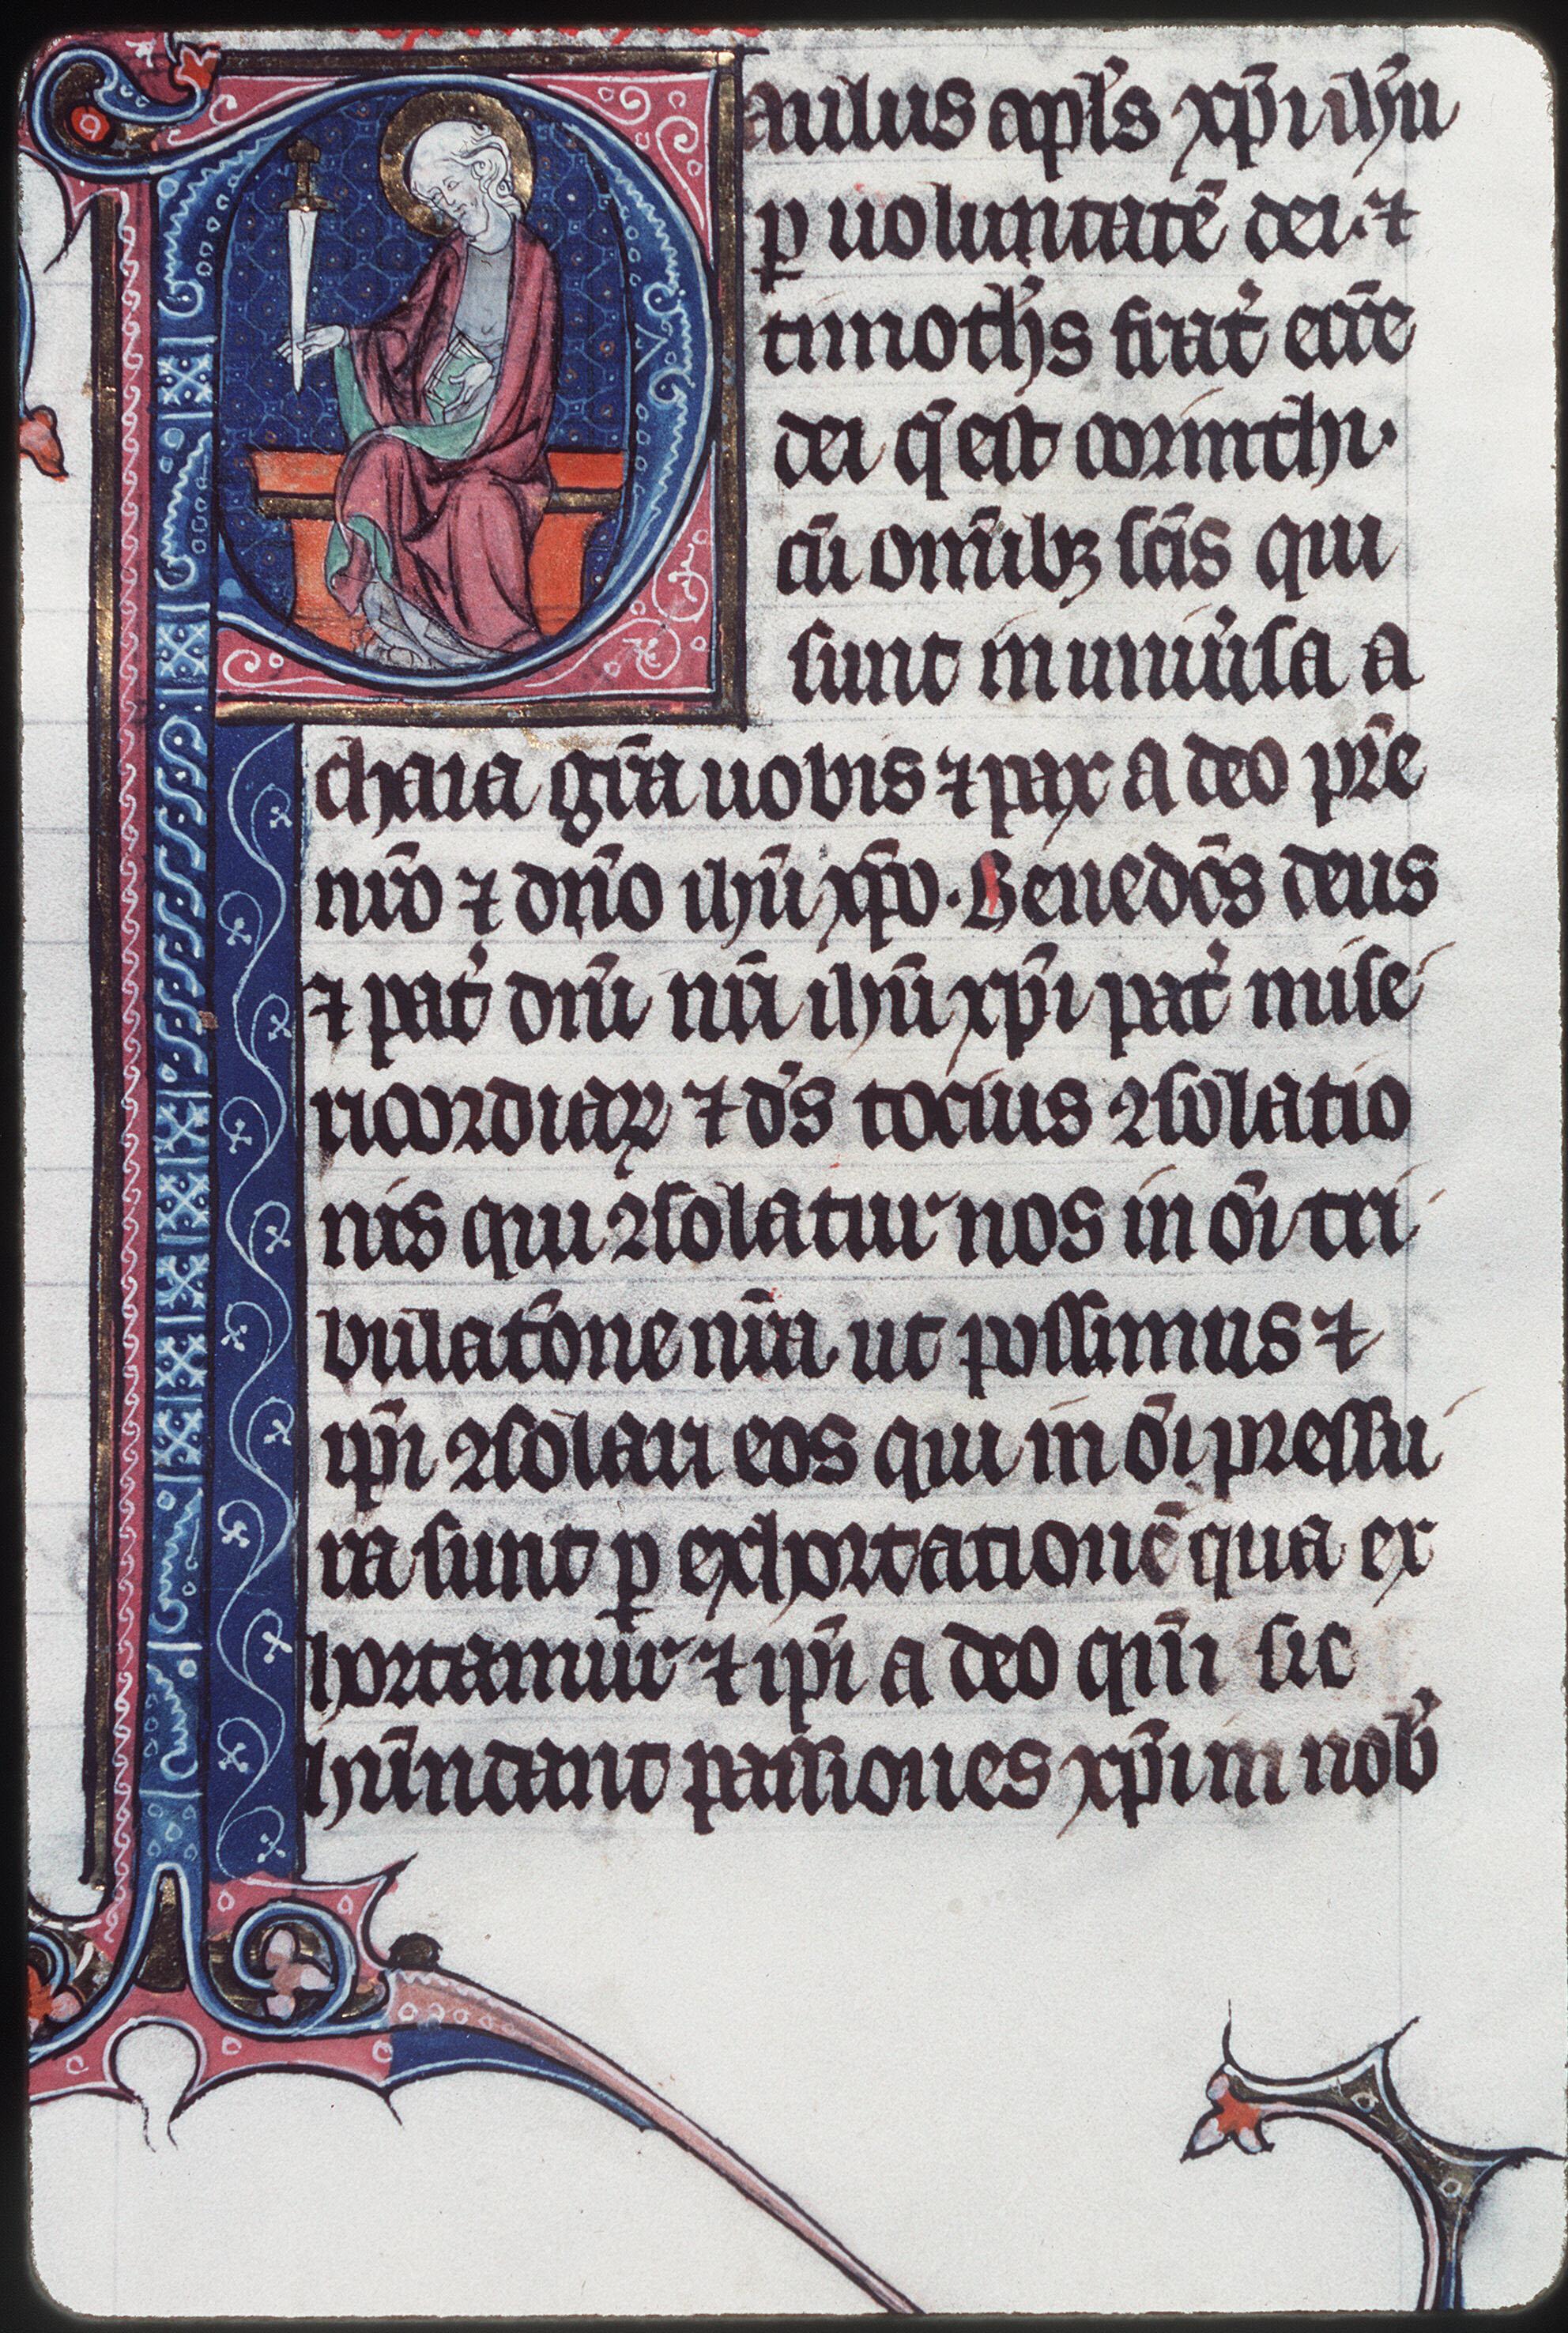 Paulus apl̃s xp̃i ih̃u
ꝑ uoluntatẽ dei ⁊
timothẽs frat̾ ecc̃e
dei q̃ est corinthi·
cũ om̃ibꝫ sc̃is qui
sunt in uniũsa a
chaia gr̃a uobis ⁊ pax a deo pr̃e
nr̃o ⁊ dño ih̃u xp̃o. Benedc̃s deus
⁊ pat̾ dñi nr̃i ih̃u xp̃i pat̾ mise
ricordiaꝝ ⁊ d̃s tocius ꝯsolatio
nis qui ꝯsolatur nos in õi tri
bulatõne nr̃a ut possimus ⁊
ip̃i ꝯsolari eos qui in õi pressu
ra sunt ꝑ exhortationẽ qua ex
hortamur ⁊ ip̃i a deo qm̃i sic
hũndant passiones xp̃i in nob̾